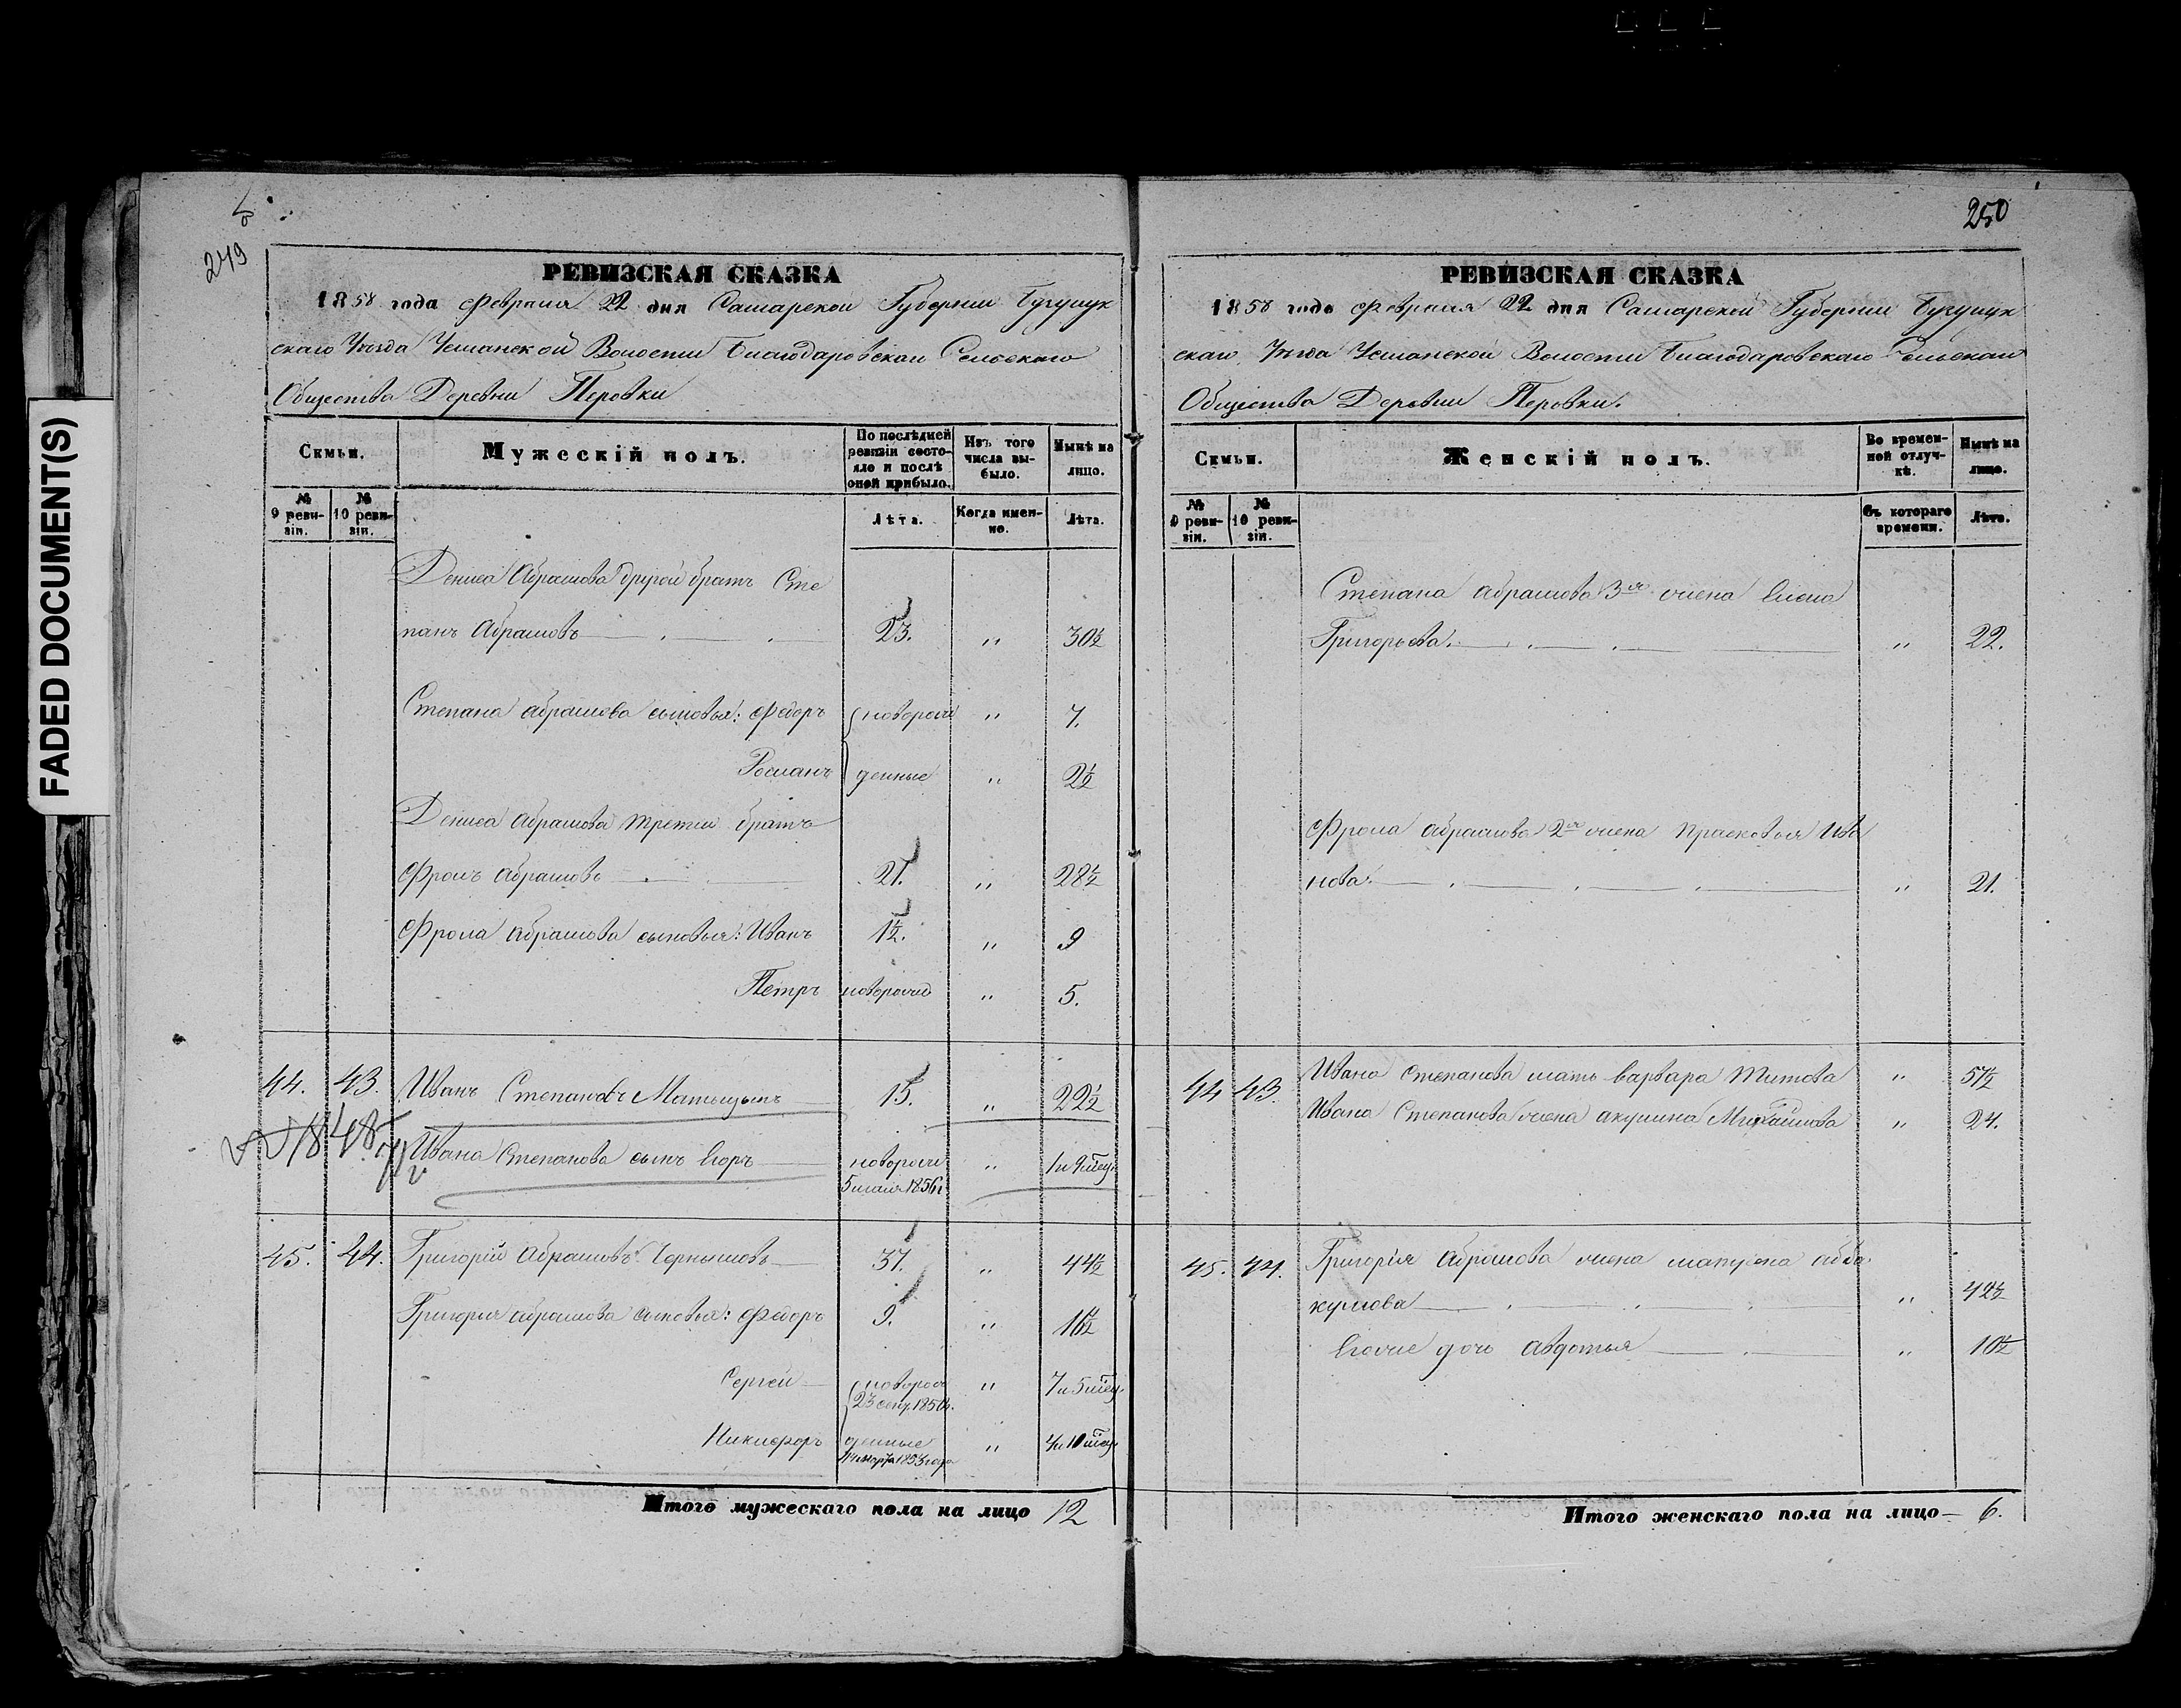 FADED DOCUMENT(S)
249
РЕВИЗСКАЯ СКАЗКА
1858 года Февраля 22 дня Самарской Губернии Бугурус
скаго Уѣзда Общества Деревни Перовки
Семьи.
Мужескій полъ.
По послѣдней ревизіи состояло и послѣ оной прибыло.
Изъ того числа выбыло.
Нынѣ на лицо.
№ 9 ревизіи.
№ 10 ревизіи.
Лѣта.
Когда именно.
Лѣта.
Дениса Абрамова другой братъ Сте
панъ Абрамовъ 23. " 30½
Степана Абрамова сыновья: Федоръ новорож " 7.
Романъ денные " 2½
Дениса Абрамова третий братъ
Фролъ Абрамовъ 21. " 28½
Фрола Абрамова сыновья: Иванъ 1½. " 9
Петръ новорож " 5.
44. 43. Иванъ Степановъ 15. " 22½
Ивана Степанова сынъ Егоръ новорож " 1 и 9 мѣсяц
5 мая 1856 г
45. 44. Григорій Абрамовъ Чернышовъ 37. " 44½
Григорія Абрамова сыновья: Федоръ 9. " 16½
Сергей новорож " 7 и 5 мѣсяц
23 сент. 1850 г.
Никифоръ денные " 4 и 10 мѣсяц
марта 1853 года
Итого мужескаго пола на лицо 12
250
РЕВИЗСКАЯ СКАЗКА
1858 года Февраля 22 дня Самарской Губерніи Бугурус
скаго Уѣзда Волости Благодаровскаго Сельскаго
Общества Деревни Перовки.
Семьи.
Женскій полъ.
Во временной отлучкѣ.
Нынѣ на лицо.
№ 9 ревизіи.
№ 10 ревизіи.
Съ котораго времени.
Лѣта.
Степана Абрамова 3я жена Елена
Григорьева. " 22.
Фрола Абрамова 2я жена Прасковья Ива
нова. " 21.
44 43. Ивана Степанова мать Варвара Титова " 57½
Ивана Степанова жена Акулина Михайлова " 24.
45. 44. Григорія Абрамова жена Матрена Авва
кумова " 42½
Егоже дочь Авдотья " 10½
Итого женскаго пола на лицо 6.